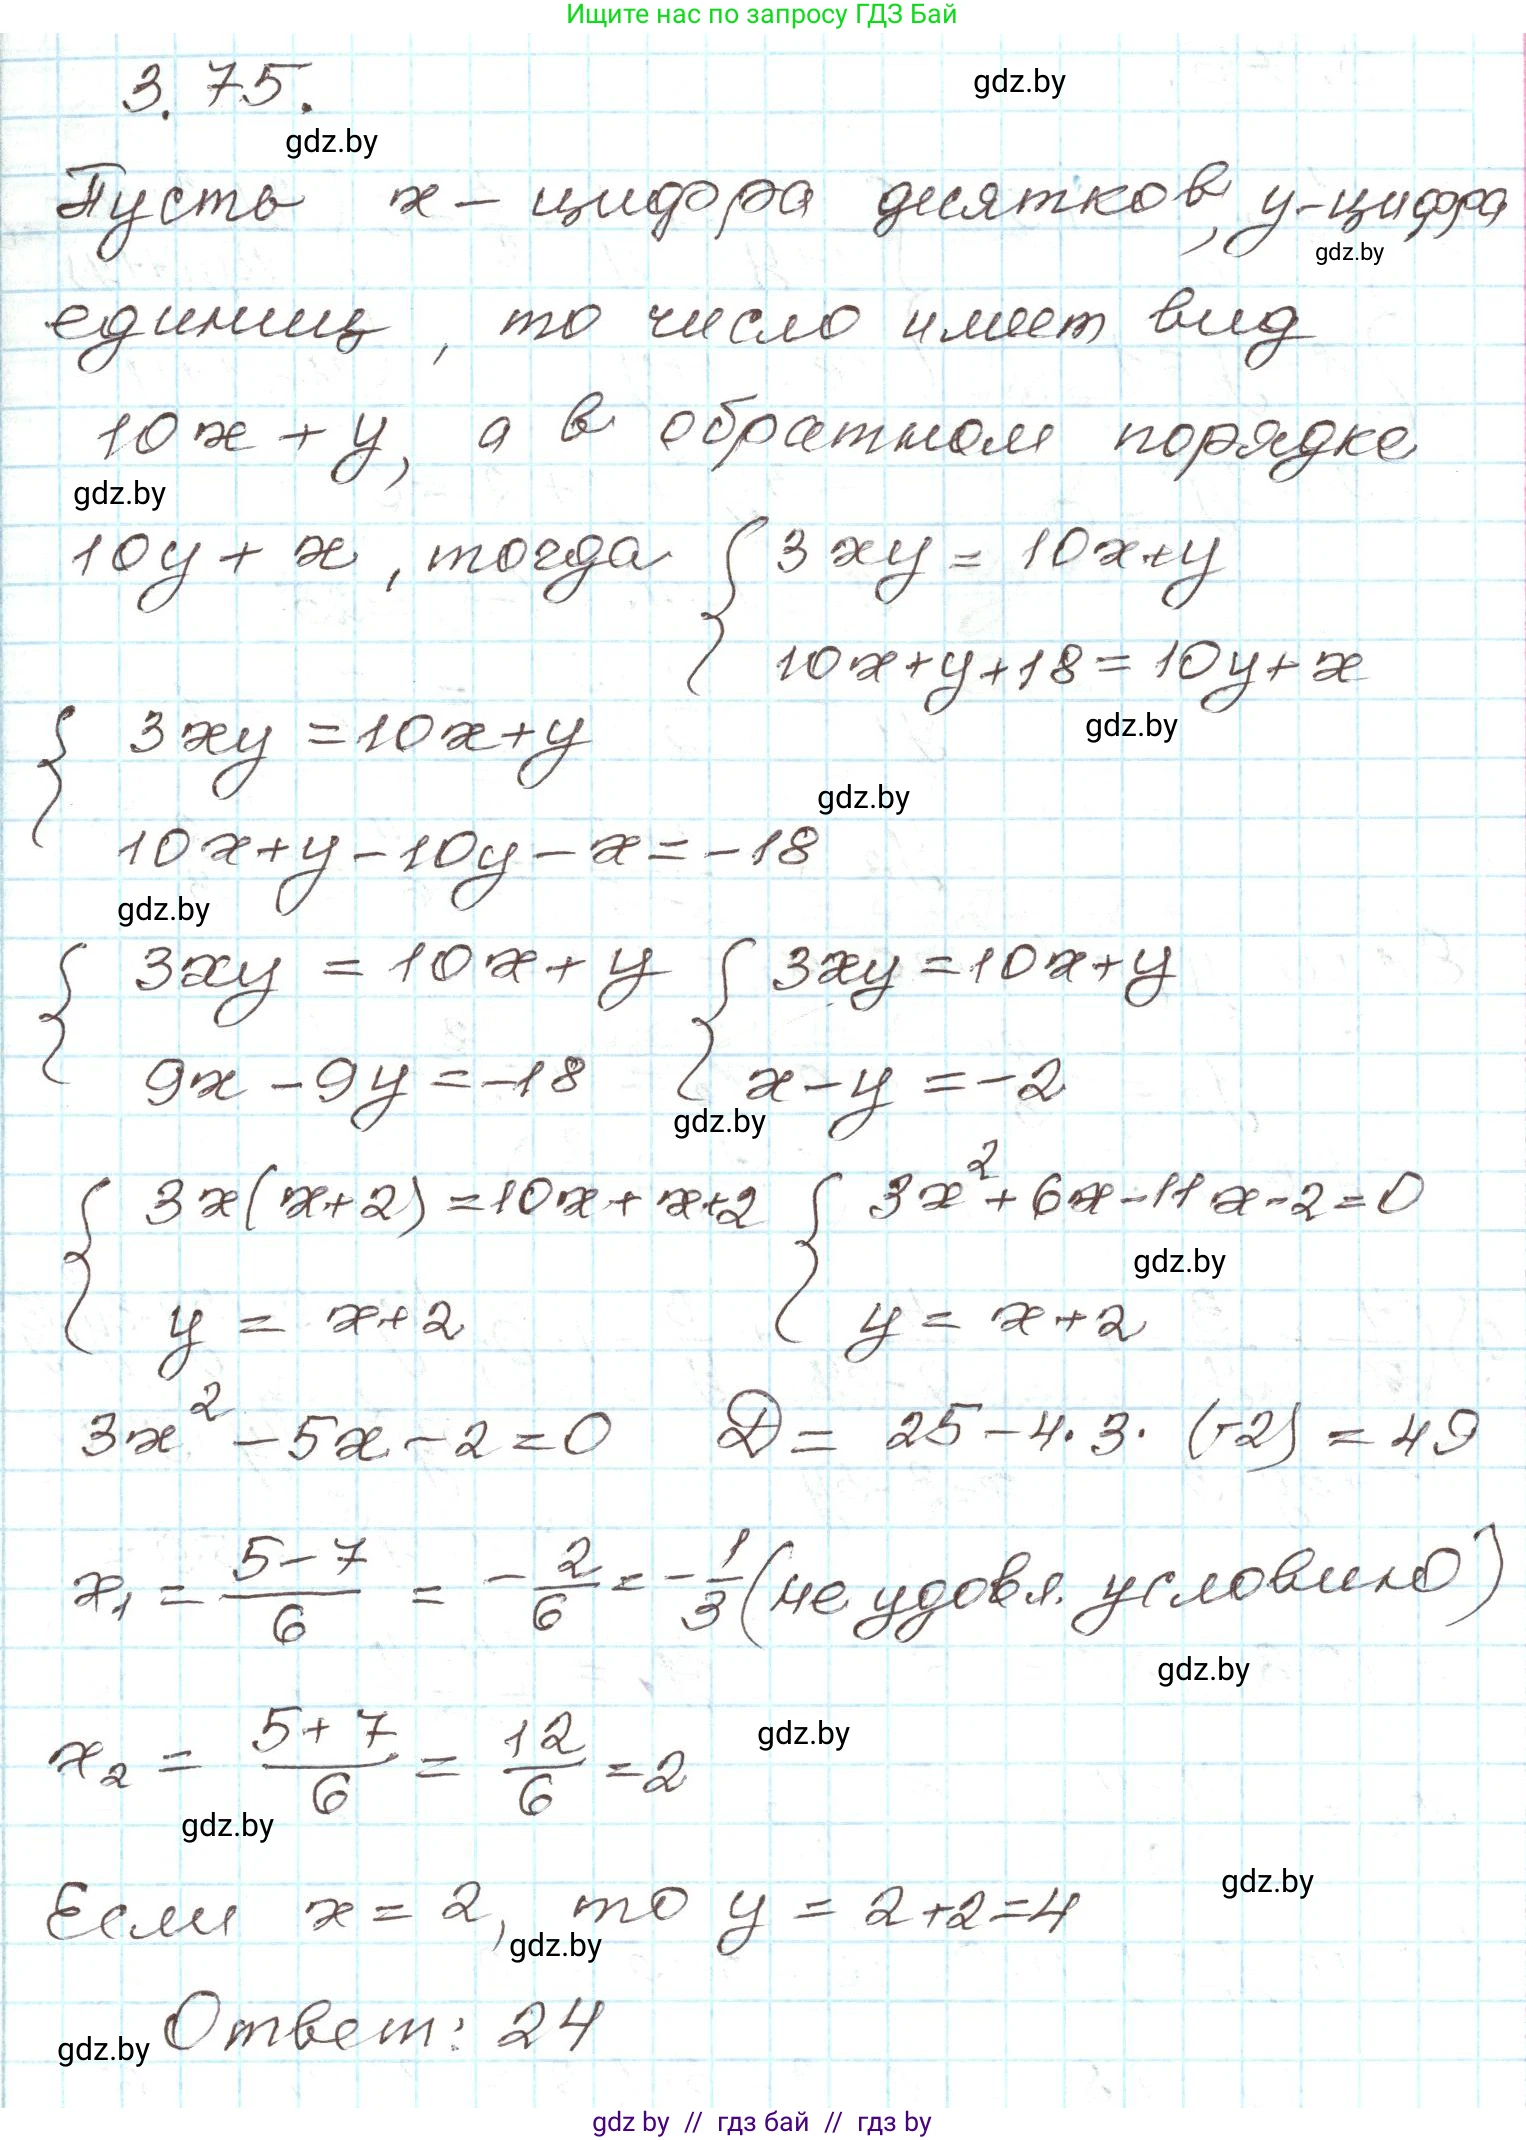 Ищите нас по запросу ГДЗ Бай
3.75.
gdz.by
gdz.by
Пусть x – цифра десятков, y – цифра
gdz.by
единиц, то число имеет вид
10x + y, а в обратном порядке
gdz.by
10y + x, тогда { 3xy = 10x+y
10x+y+18 = 10y+x
gdz.by
{ 3xy = 10x+y
gdz.by
10x+y-10y-x = -18
gdz.by
{ 3xy = 10x+y { 3xy = 10x+y
9x - 9y = -18 x - y = -2
gdz.by
{ 3x(x+2) = 10x + x+2 { 3x² + 6x - 11x - 2 = 0
gdz.by
y = x+2 y = x+2
3x² - 5x - 2 = 0 D = 25 - 4·3·(-2) = 49
x₁ = (5-7)/6 = -2/6 = -1/3 (не удовл. условию)
gdz.by
x₂ = (5+7)/6 = 12/6 = 2
gdz.by
gdz.by
Если x = 2, то y = 2+2=4
gdz.by
gdz.by
Ответ: 24
gdz.by
gdz by // гдз бай // гдз by